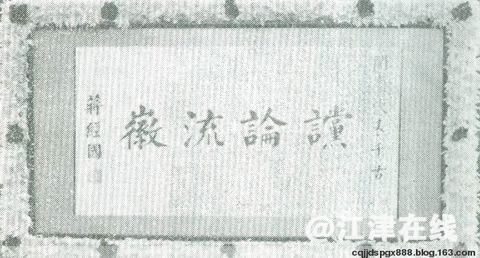 千古
讜論流徽
蔣經國
@江津在线
cqjjdspgx888.blog.163.com